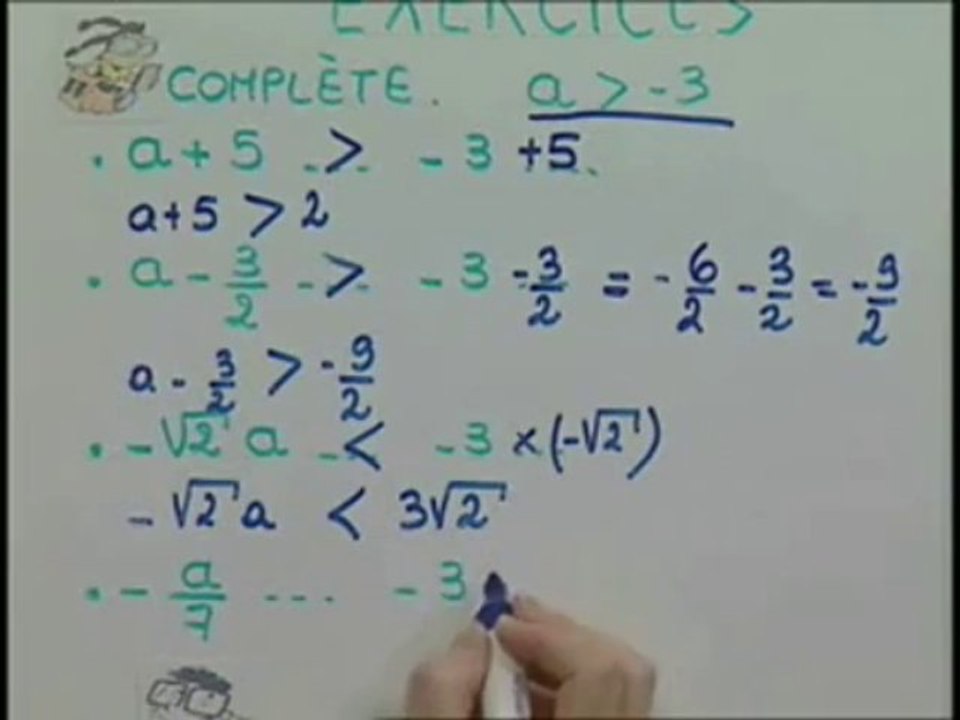 EXERCICES
COMPLÈTE. a > -3
. a + 5 ..>.. - 3 +5.
a+5 > 2
. a - 3/2 ..>.. - 3 - 3/2 = - 6/2 - 3/2 = - 9/2
a - 3/2 > - 9/2
. - √2 a ..< - 3 × (-√2)
- √2 a < 3√2
. - a/7 ... - 3